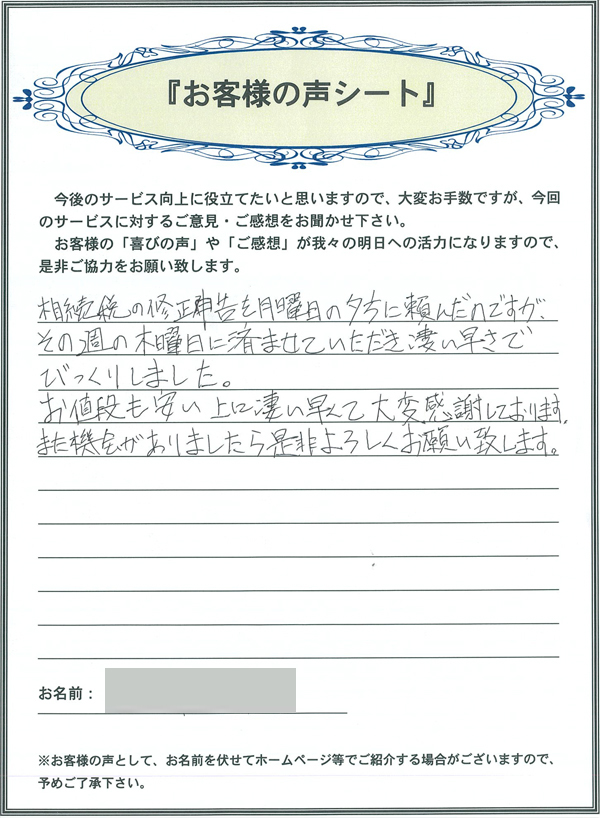 『お客様の声シート』
今後のサービス向上に役立てたいと思いますので、大変お手数ですが、今回
のサービスに対するご意見・ご感想をお聞かせ下さい。
お客様の「喜びの声」や「ご感想」が我々の明日への活力になりますので、
是非ご協力をお願い致します。
相続税の修正申告を月曜日の夕方に頼んだのですが、
その週の木曜日に済ませていただき凄い早さで
びっくりしました。
お値段も安い上に凄い早くて大変感謝しております。
また機会がありましたら是非よろしくお願い致します。
お名前：
※お客様の声として、お名前を伏せてホームページ等でご紹介する場合がございますので、
予めご了承下さい。